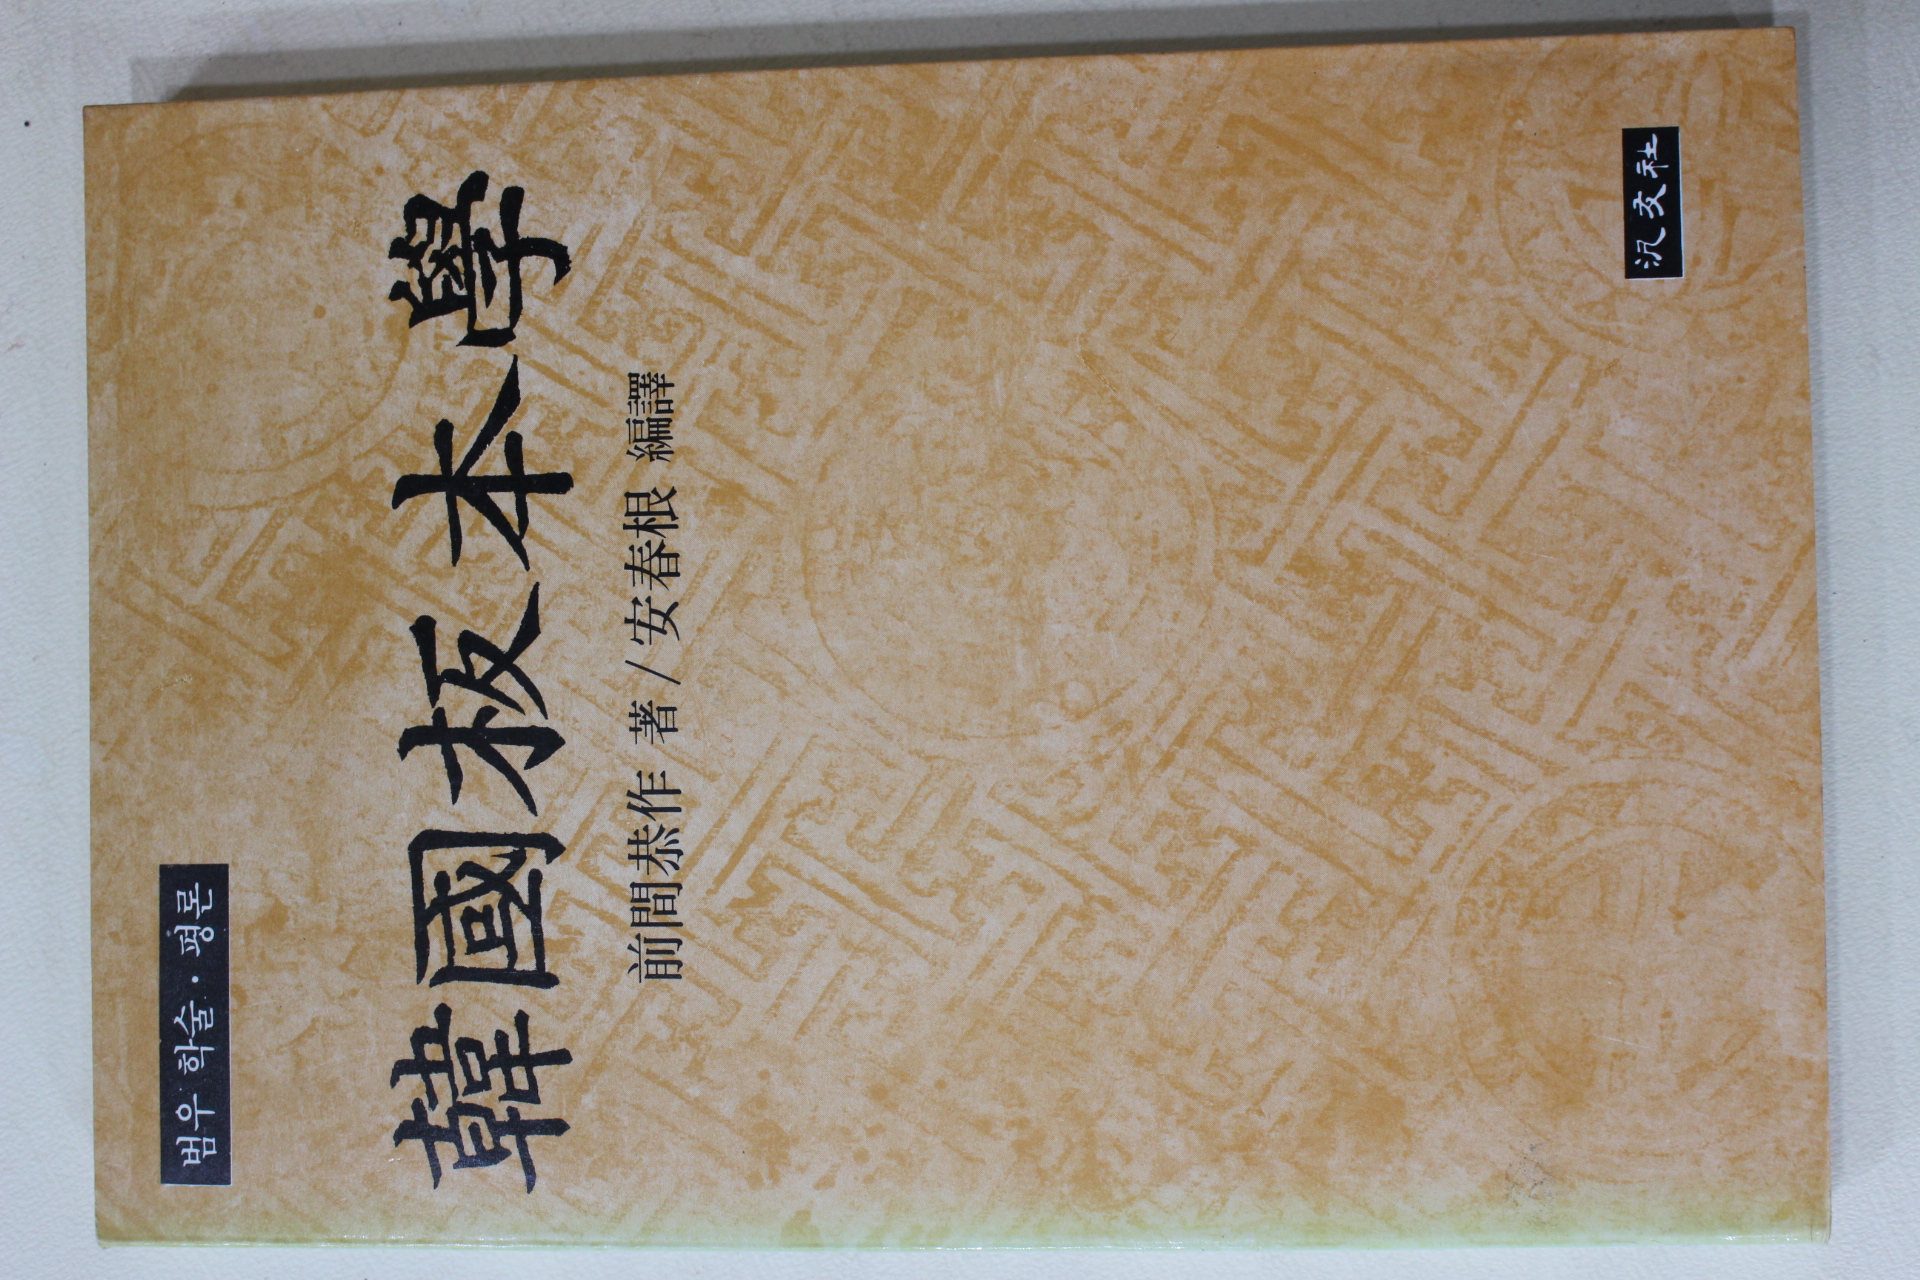 범우 학술·평론
韓國板本學
前間恭作 著/安春根 編譯
汎友社